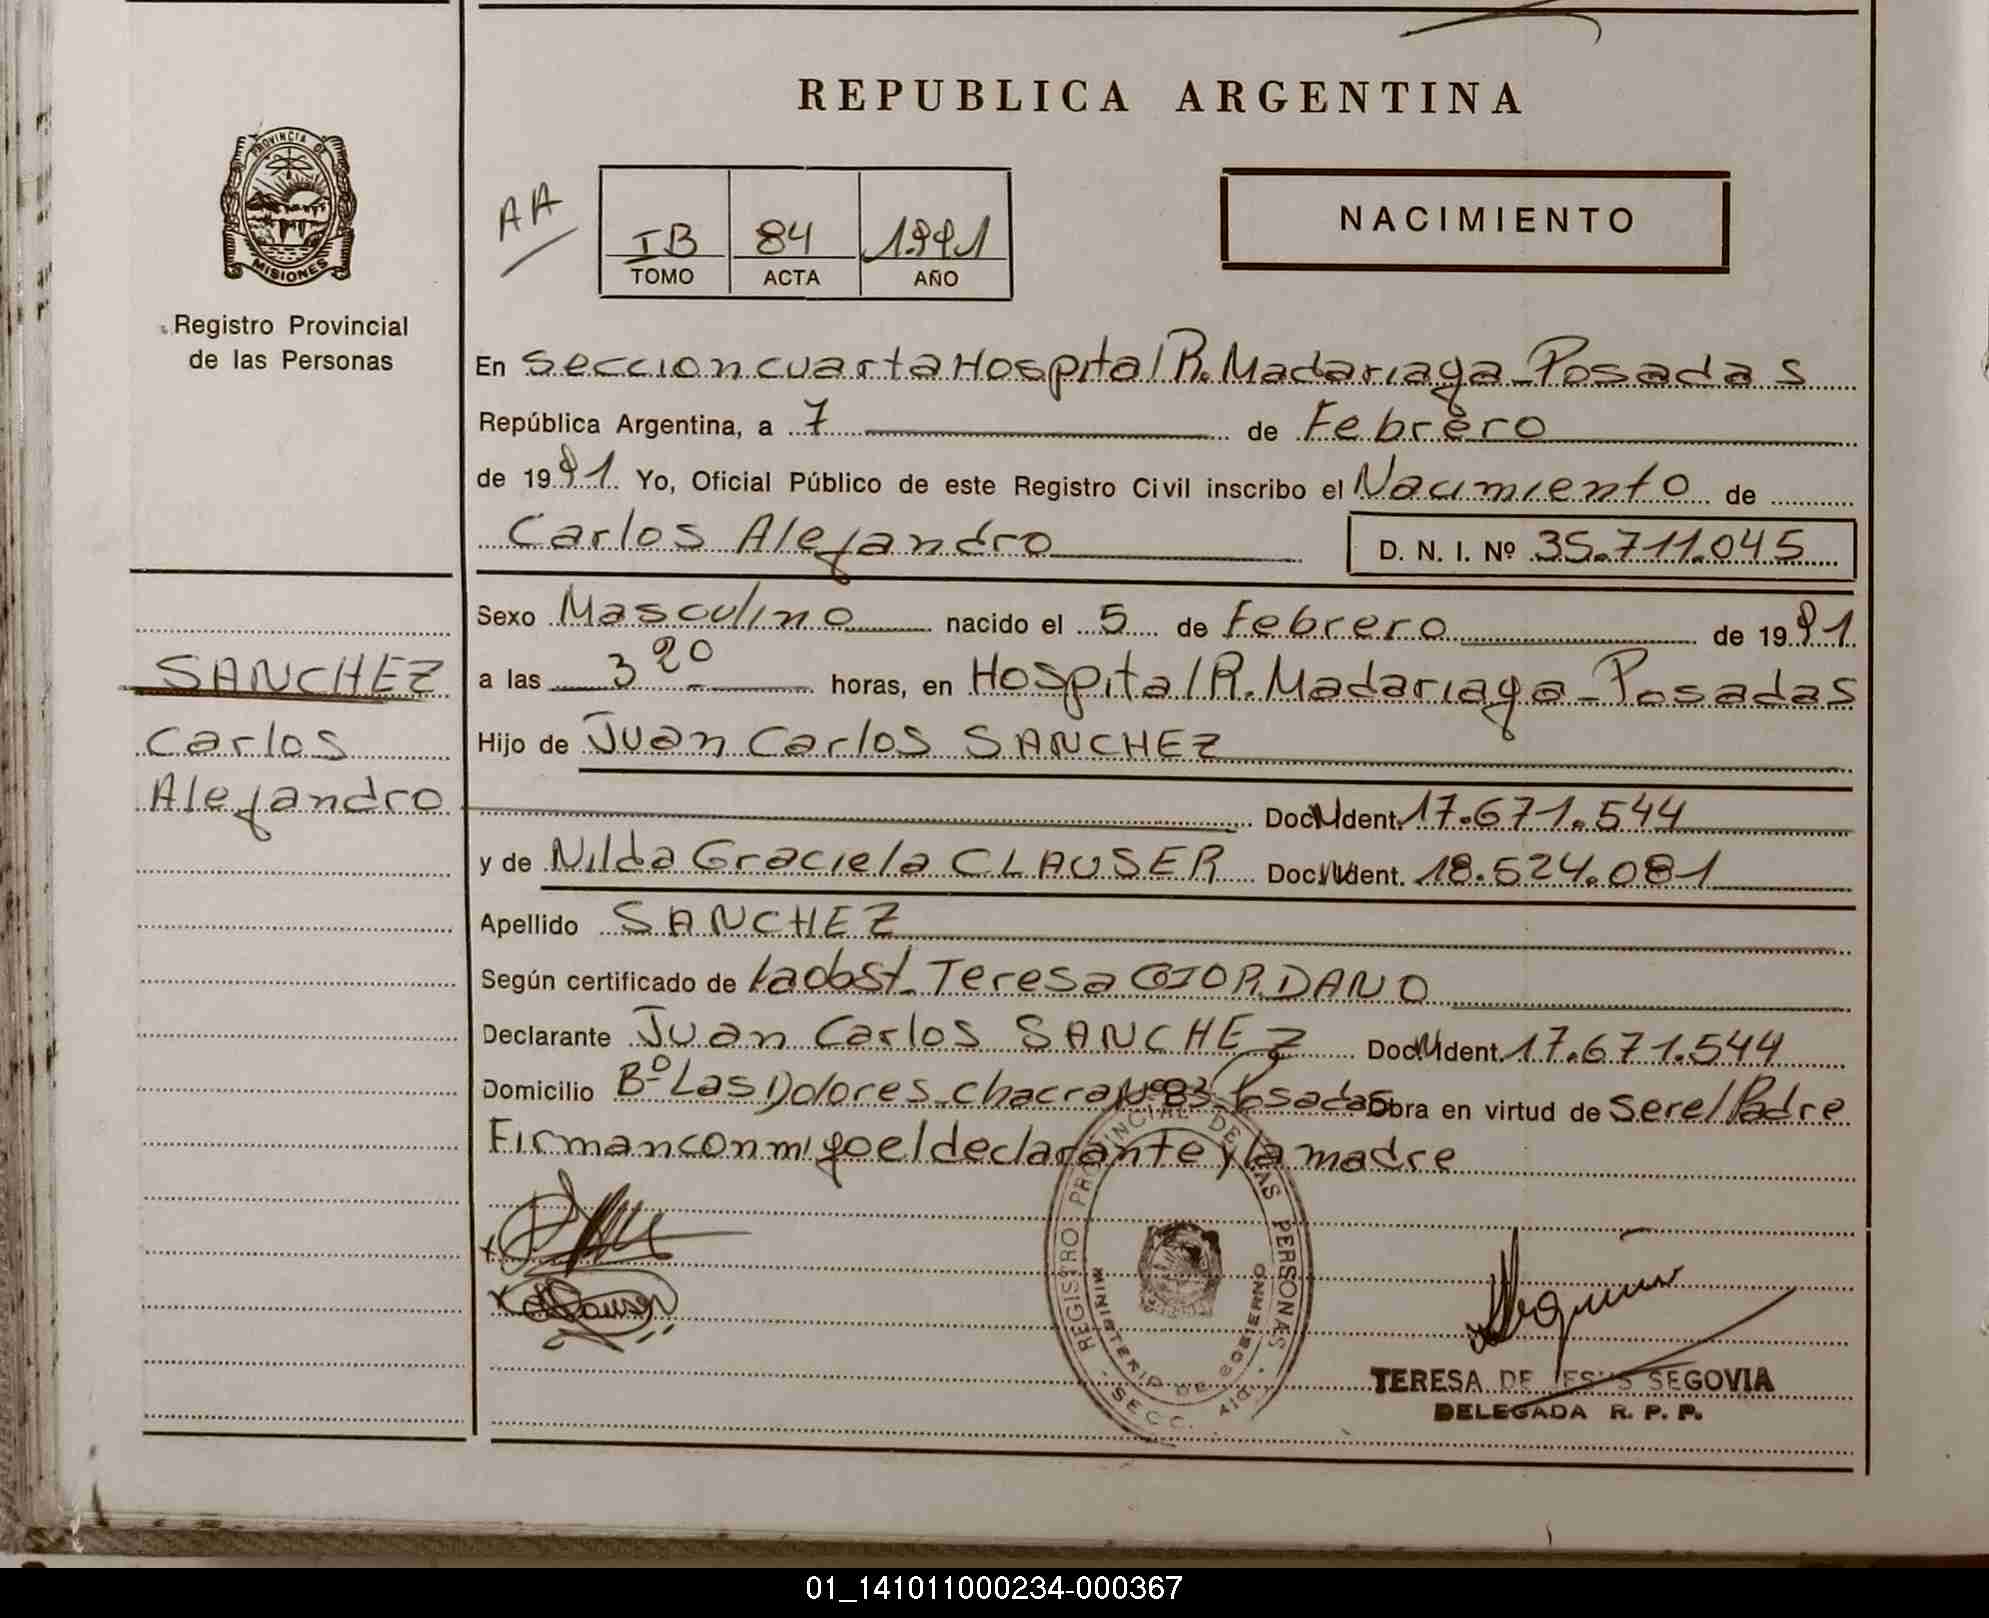 REPUBLICA ARGENTINA
PROVINCIA DE
MISIONES
Registro Provincial
de las Personas
AA
IB 84 1.991
TOMO ACTA AÑO
NACIMIENTO
En Seccion cuarta Hospital R. Madariaga - Posadas
República Argentina, a 7 de Febrero
de 1991. Yo, Oficial Público de este Registro Civil inscribo el Nacimiento de
Carlos Alejandro D. N. I. Nº 35.711.045
Sexo Masculino nacido el 5 de Febrero de 1991
a las 3 20 horas, en Hospital R. Madariaga - Posadas
Hijo de Juan Carlos SANCHEZ
Doc. Ident. 17.671.544
y de Nilda Graciela CLAUSER Doc. Ident. 18.524.081
Apellido SANCHEZ
Según certificado de la obst. Teresa GIORDANO
Declarante Juan Carlos SANCHEZ Doc. Ident. 17.671.544
Domicilio Bº Las Dolores - chacra Nº 83 - Posadas Obra en virtud de ser el Padre
Firman conmigo el declarante y la madre
SANCHEZ
Carlos
Alejandro
REGISTRO PROVINCIAL DE LAS PERSONAS
MINISTERIO DE GOBIERNO
SECC. 4ta.
TERESA DE JESUS SEGOVIA
DELEGADA R. P. P.
01_141011000234-000367